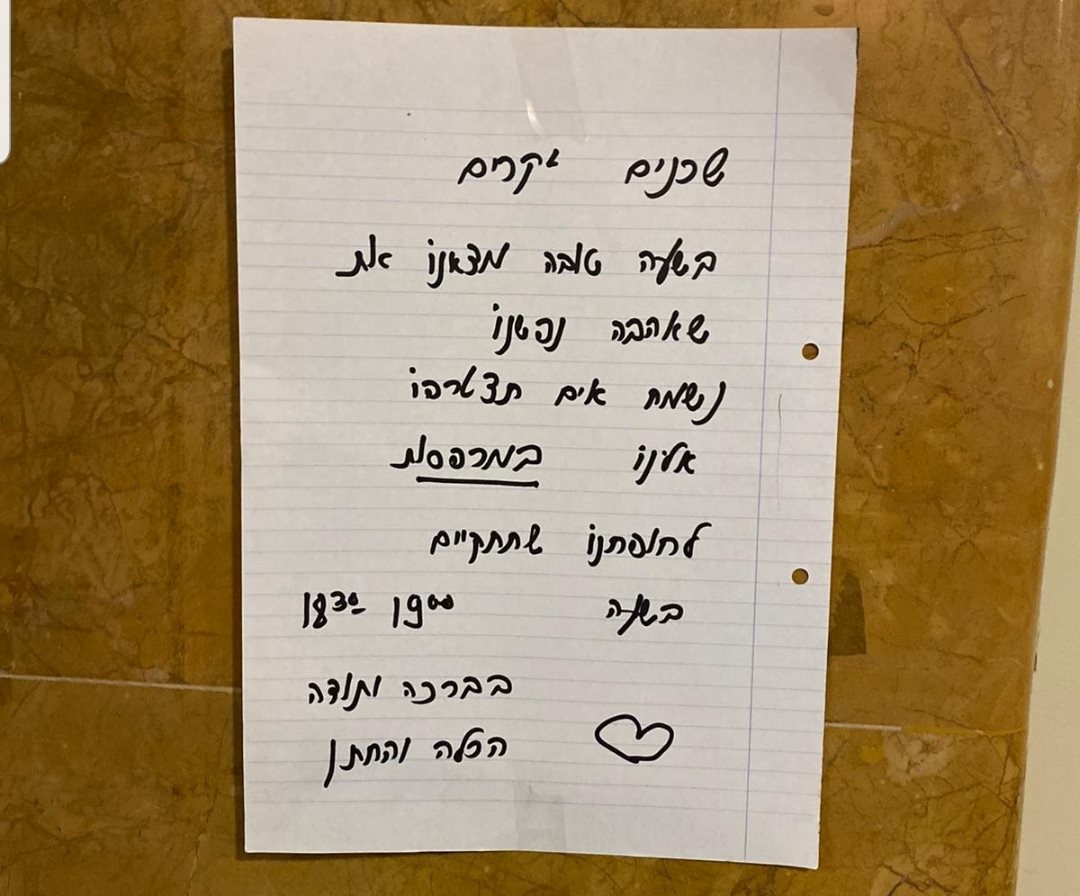 שכנים יקרים
בשעה טובה מצאנו את
שאהבה נפשנו
נשמח אים תצטרפו
אלינו במרפסת
לחופתנו שתתקיים
בשעה 18³⁰ - 19⁰⁰
בברכה ותודה
הכלה והחתן